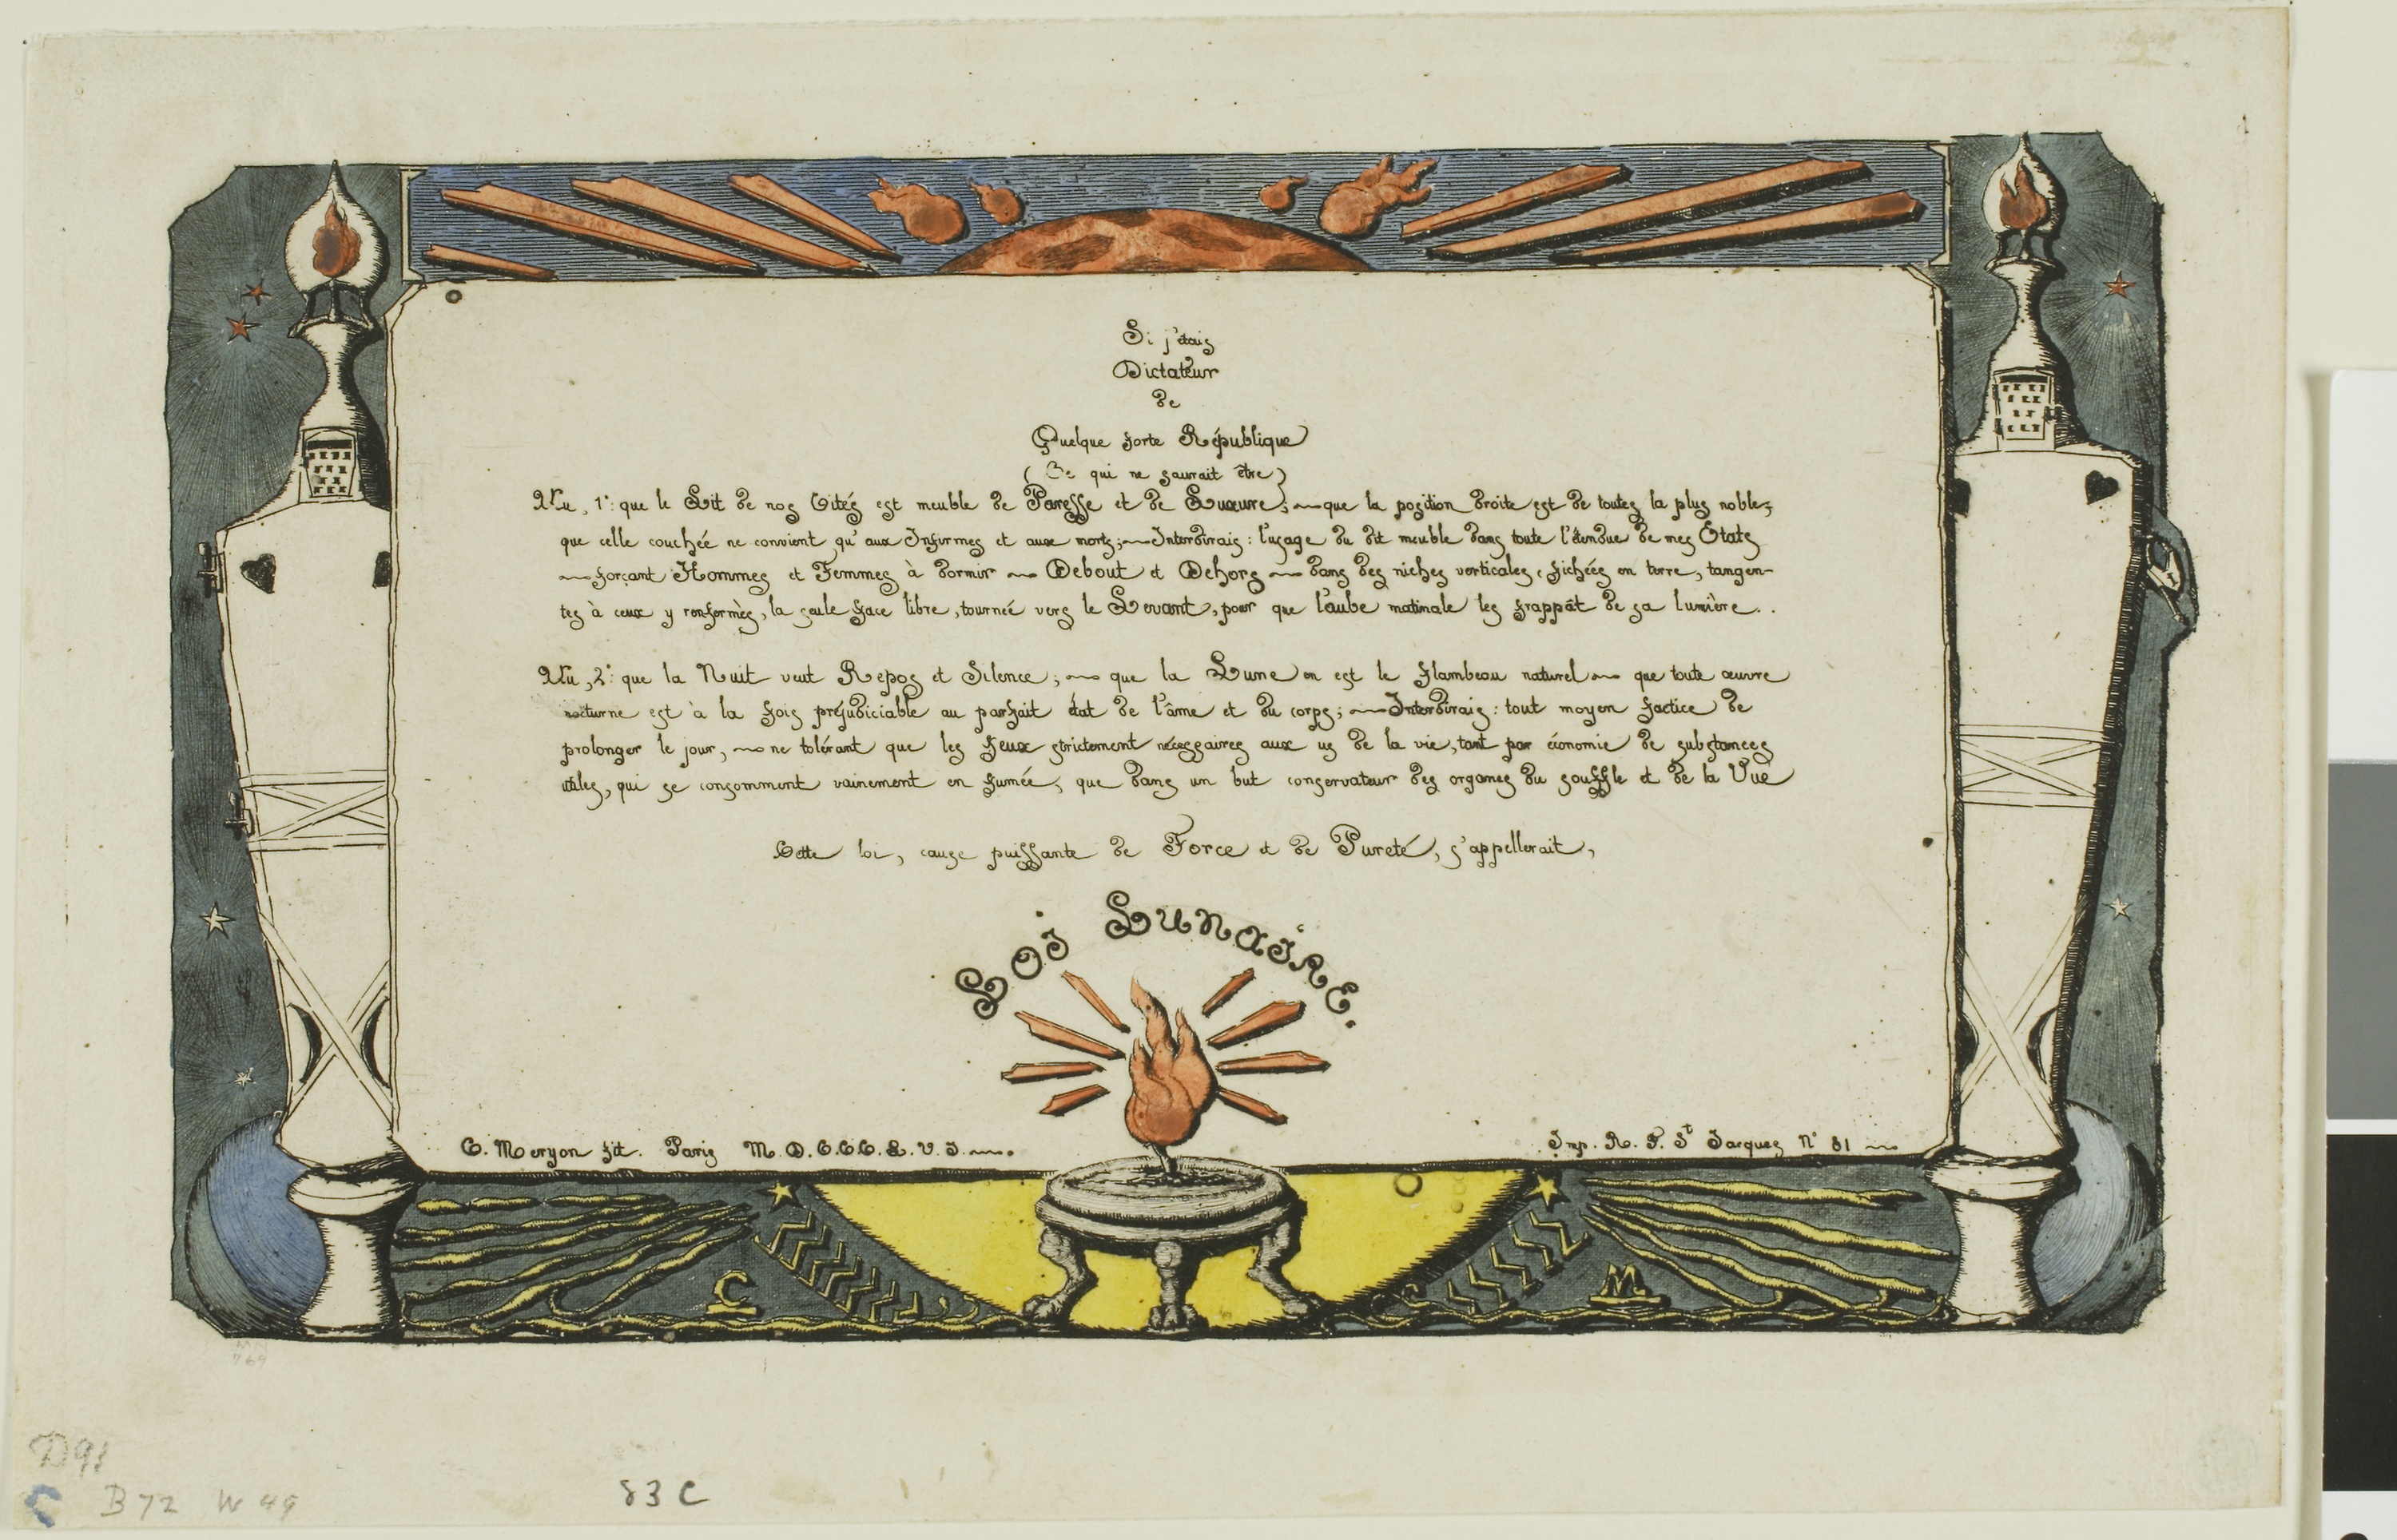 Si j'étais
Dictateur
de
Quelque forte République
(Ce qui ne saurait être)
Vu, 1°: que le Lit de nos Cités est meuble de Paresse et de Luxure; que la position droite est de toutes la plus noble,
que celle couchée ne convient qu'aux Infirmes et aux morts; Interdirais: l'usage du dit meuble dans toute l'étendue de mes Etats
forçant Hommes et Femmes à dormir Debout et Dehors dans des niches verticales, fichées en terre, tangen-
tes à ceux y renfermès, la seule face libre, tournée vers le Levant, pour que l'aube matinale les frappât de sa lumière..
Vu, 2°: que la Nuit veut Repos et Silence; que la Lune en est le flambeau naturel que toute œuvre
nocturne est à la fois préjudiciable au parfait état de l'âme et du corps; Interdirais: tout moyen factice de
prolonger le jour, ne tolérant que les feux strictement nécessaires aux us de la vie, tant par économie de substances
utiles, qui se consomment vainement en fumée, que dans un but conservateur des organes du souffle et de la Vue
Cette loi, cause puissante de Force et de Pureté, s'appellerait,
LOI LUNAIRE.
C. Meryon fit. Paris M.D.CCC.L.V.I.
Imp. R. N. St Jacques N° 81
C M
D91
C B72 W49
83 C